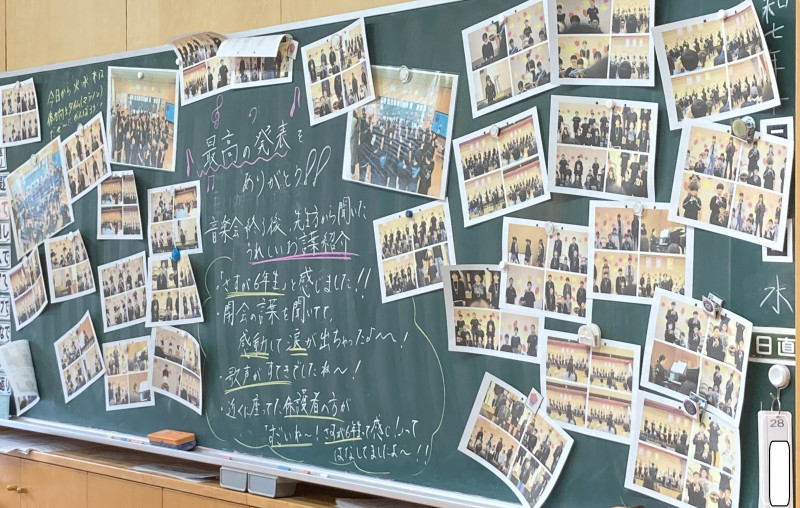 今日から火水木は
最高の発表を
ありがとう!!
音楽会終了後、先生方から聞いた
うれしいお言葉紹介
・「さすが6年生」と感じました!!
・閉会の言葉を聞いてて、
感動して涙が出ちゃったよ〜!
・歌声がすてきでしたね〜!
・近くに座ってた保護者の方が
「すごいね〜!さすが6年って感じ!」って
はなしてましたよ〜!!
和七年
水
日直
28